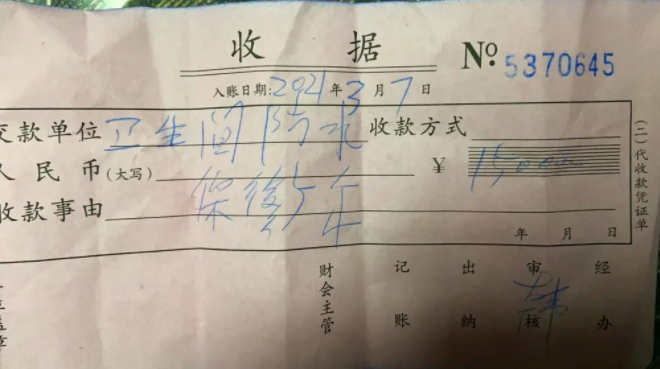 收 据 Nº 5370645
入账日期:2021年3月7日
交款单位 卫生间防水 收款方式
人民币(大写) ¥ 1500
收款事由 保修5年
年 月 日
财会主管 记账 出纳 审核 经办
(二)代收款凭证单